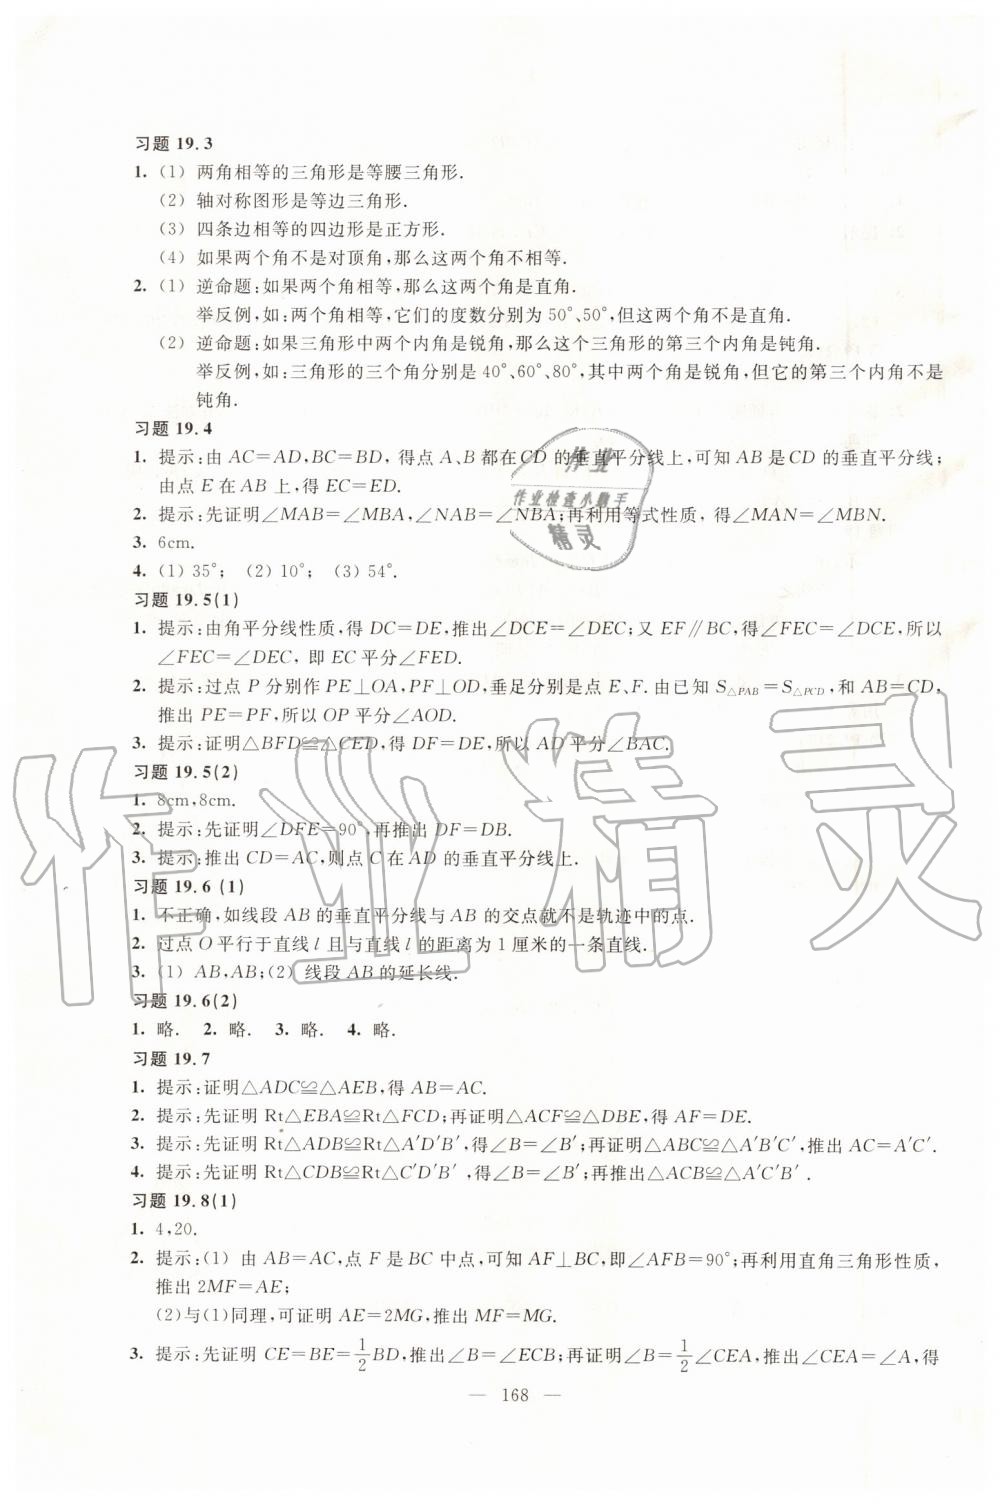 习题 19.3
1. (1) 两角相等的三角形是等腰三角形.
(2) 轴对称图形是等边三角形.
(3) 四条边相等的四边形是正方形.
(4) 如果两个角不是对顶角,那么这两个角不相等.
2. (1) 逆命题:如果两个角相等,那么这两个角是直角.
举反例,如:两个角相等,它们的度数分别为 50°、50°,但这两个角不是直角.
(2) 逆命题:如果三角形中两个内角是锐角,那么这个三角形的第三个内角是钝角.
举反例,如:三角形的三个角分别是 40°、60°、80°,其中两个角是锐角,但它的第三个内角不是
钝角.
习题 19.4
1. 提示:由 AC=AD,BC=BD, 得点 A、B 都在CD 的垂直平分线上,可知 AB 是CD 的垂直平分线;
由点 E 在 AB 上,得 EC=ED.
2. 提示:先证明∠MAB=∠MBA,∠NAB=∠NBA;再利用等式性质, 得∠MAN=∠MBN.
3. 6cm.
4. (1) 35°; (2) 10°; (3) 54°.
习题 19.5(1)
1. 提示:由角平分线性质,得 DC=DE,推出∠DCE=∠DEC;又 EF∥BC,得∠FEC=∠DCE,所以
∠FEC=∠DEC, 即 EC 平分∠FED.
2. 提示:过点 P 分别作 PE⊥OA,PF⊥OD,垂足分别是点 E、F. 由已知 S△PAB=S△PCD,和 AB=CD,
推出 PE=PF,所以 OP 平分∠AOD.
3. 提示:证明△BFD≌△CED,得 DF=DE,所以 AD 平分∠BAC.
习题 19.5(2)
1. 8cm,8cm.
2. 提示:先证明∠DFE=90°,再推出 DF=DB.
3. 提示:推出 CD=AC,则点 C 在 AD 的垂直平分线上.
习题 19.6 (1)
1. 不正确,如线段 AB 的垂直平分线与 AB 的交点就不是轨迹中的点.
2. 过点 O 平行于直线 l 且与直线 l 的距离为 1 厘米的一条直线.
3. (1) AB,AB;(2) 线段 AB 的延长线.
习题 19.6(2)
1. 略. 2. 略. 3. 略. 4. 略.
习题 19.7
1. 提示:证明△ADC≌△AEB,得 AB=AC.
2. 提示:先证明 Rt△EBA≌Rt△FCD;再证明△ACF≌△DBE,得 AF=DE.
3. 提示:先证明 Rt△ADB≌Rt△A′D′B′,得∠B=∠B′;再证明△ABC≌△A′B′C′,推出 AC=A′C′.
4. 提示:先证明 Rt△CDB≌Rt△C′D′B′,得∠B=∠B′;再推出△ABC≌△A′B′C′.
习题 19.8(1)
1. 4,20.
2. 提示:(1) 由 AB=AC,点 F 是 BC 中点,可知 AF⊥BC,即∠AFB=90°;再利用直角三角形性质,
推出 2MF=AE;
(2)与(1)同理,可证明 AE=2MG,推出 MF=MG.
3. 提示:先证明 CE=BE=1/2BD,推出∠B=∠ECB;再证明∠B=1/2∠CEA,推出∠CEA=∠A,得
— 168 —
作业
作业检查小助手
精灵
作业精灵